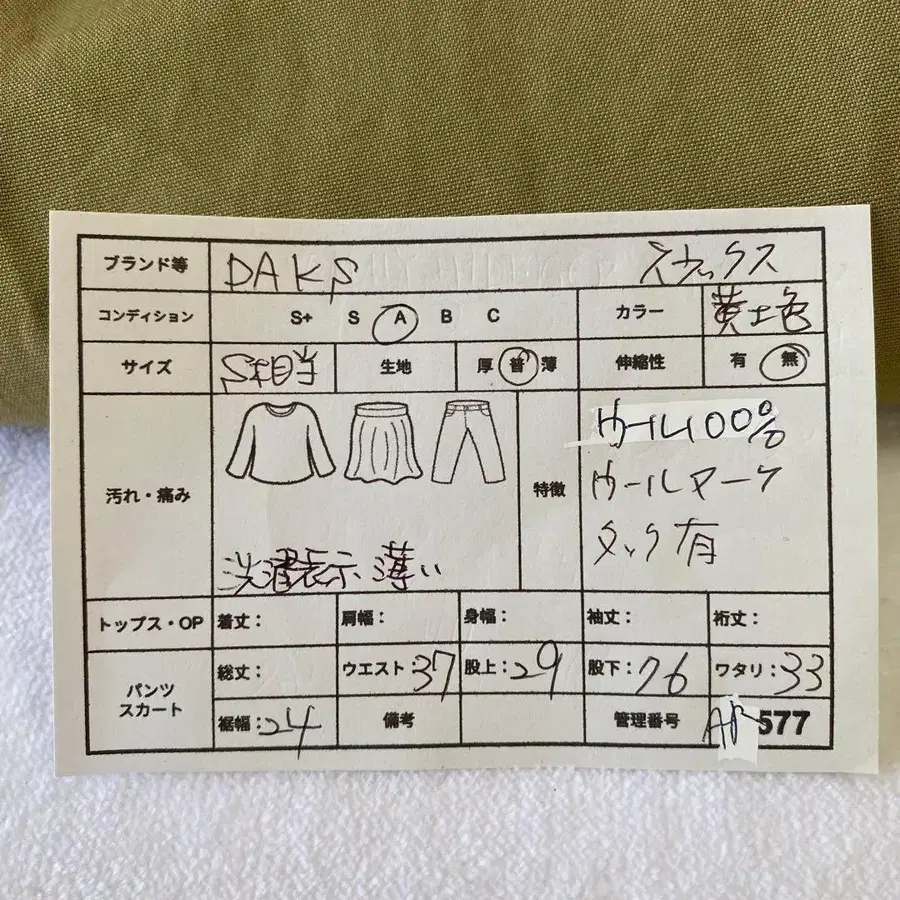 ブランド等 DAKS スラックス
コンディション S+ S A B C カラー 黄土色
サイズ S相当 生地 厚 普 薄 伸縮性 有 無
汚れ・痛み 洗濯表示薄い 特徴 ウール100%
ウールマーク
タック有
トップス・OP 着丈: 肩幅: 身幅: 袖丈: 裄丈:
パンツ スカート 総丈: ウエスト:37 股上:29 股下:76 ワタリ:33
裾幅:24 備考 管理番号 577